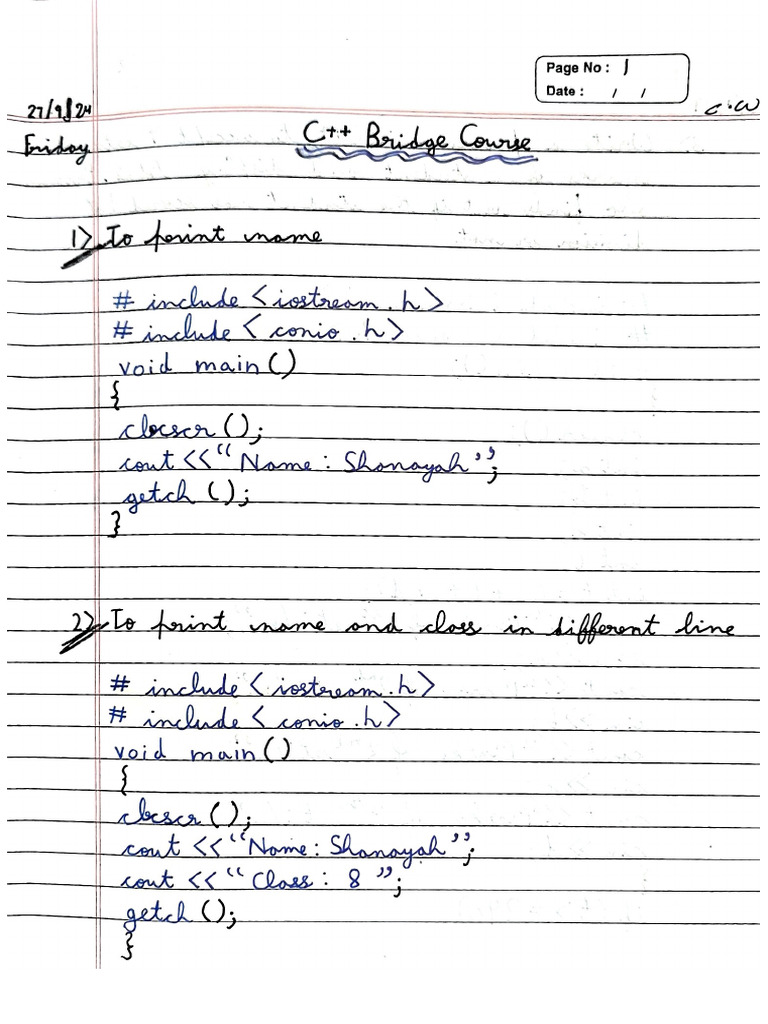 Page No : 1
Date : / /
27/9/24
C.W
Friday
C++ Bridge Course
1) To print name
# include <iostream.h>
# include < conio.h>
void main ()
{
clrscr ();
cout <<“ Name : Shanayah”;
getch ();
}
2) To print name and class in different line
# include <iostream.h>
# include < conio.h>
void main ()
{
clrscr ();
cout <<“Name: Shanayah”;
cout <<“ Class : 8 ”;
getch ();
}